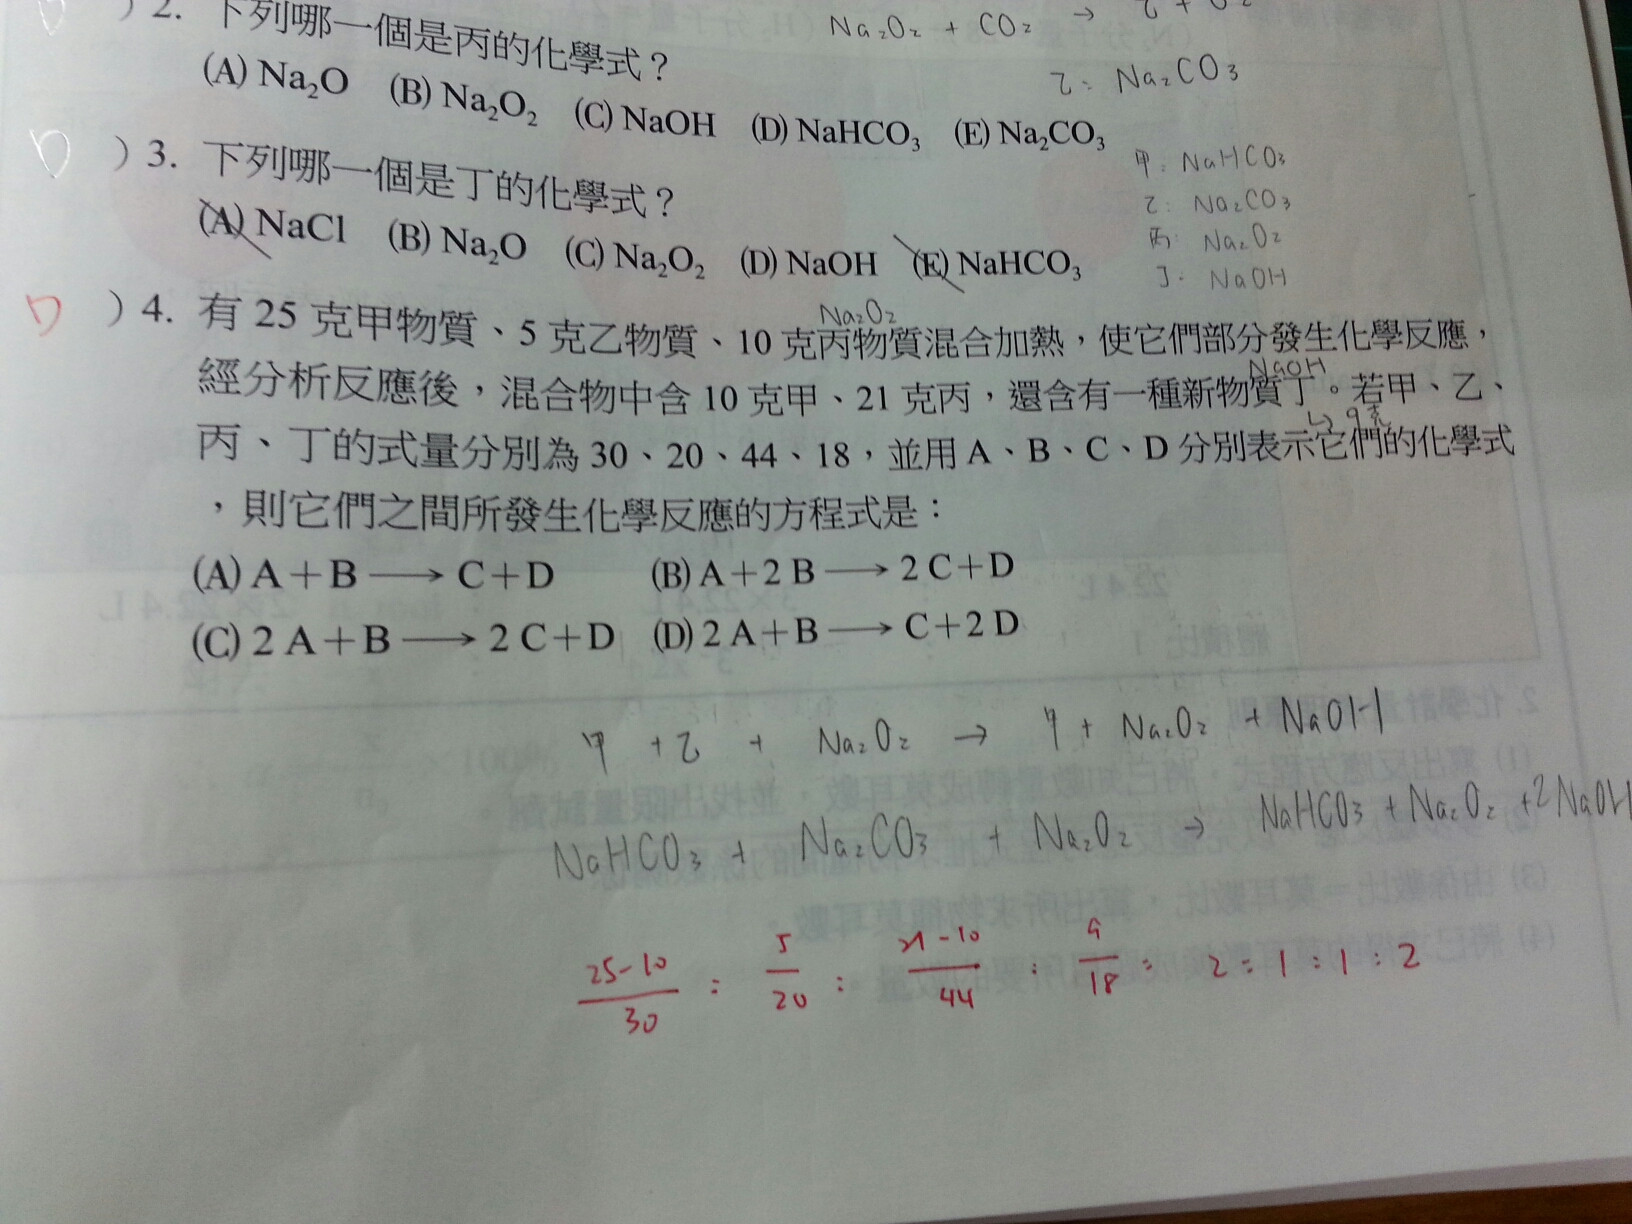 ) 2. 下列哪一個是丙的化學式？
Na₂O₂ + CO₂ → 乙 + O₂
(A) Na₂O (B) Na₂O₂ (C) NaOH (D) NaHCO₃ (E) Na₂CO₃
乙: Na₂CO₃
D ) 3. 下列哪一個是丁的化學式？
(A) NaCl (B) Na₂O (C) Na₂O₂ (D) NaOH (E) NaHCO₃
甲: NaHCO₃
乙: Na₂CO₃
丙: Na₂O₂
丁: NaOH
D ) 4. 有 25 克甲物質、5 克乙物質、10 克丙物質混合加熱，使它們部分發生化學反應，
Na₂O₂
經分析反應後，混合物中含 10 克甲、21 克丙，還含有一種新物質丁。若甲、乙、
NaOH
↳ 9克
丙、丁的式量分別為 30、20、44、18，並用 A、B、C、D 分別表示它們的化學式
，則它們之間所發生化學反應的方程式是：
(A) A＋B ⟶ C＋D (B) A＋2 B ⟶ 2 C＋D
(C) 2 A＋B ⟶ 2 C＋D (D) 2 A＋B ⟶ C＋2 D
甲 + 乙 + Na₂O₂ → 甲 + Na₂O₂ + NaOH
NaHCO₃ + Na₂CO₃ + Na₂O₂ → NaHCO₃ + Na₂O₂ + 2NaOH
25-10/30 : 5/20 : 21-10/44 : 9/18 = 2 : 1 : 1 : 2